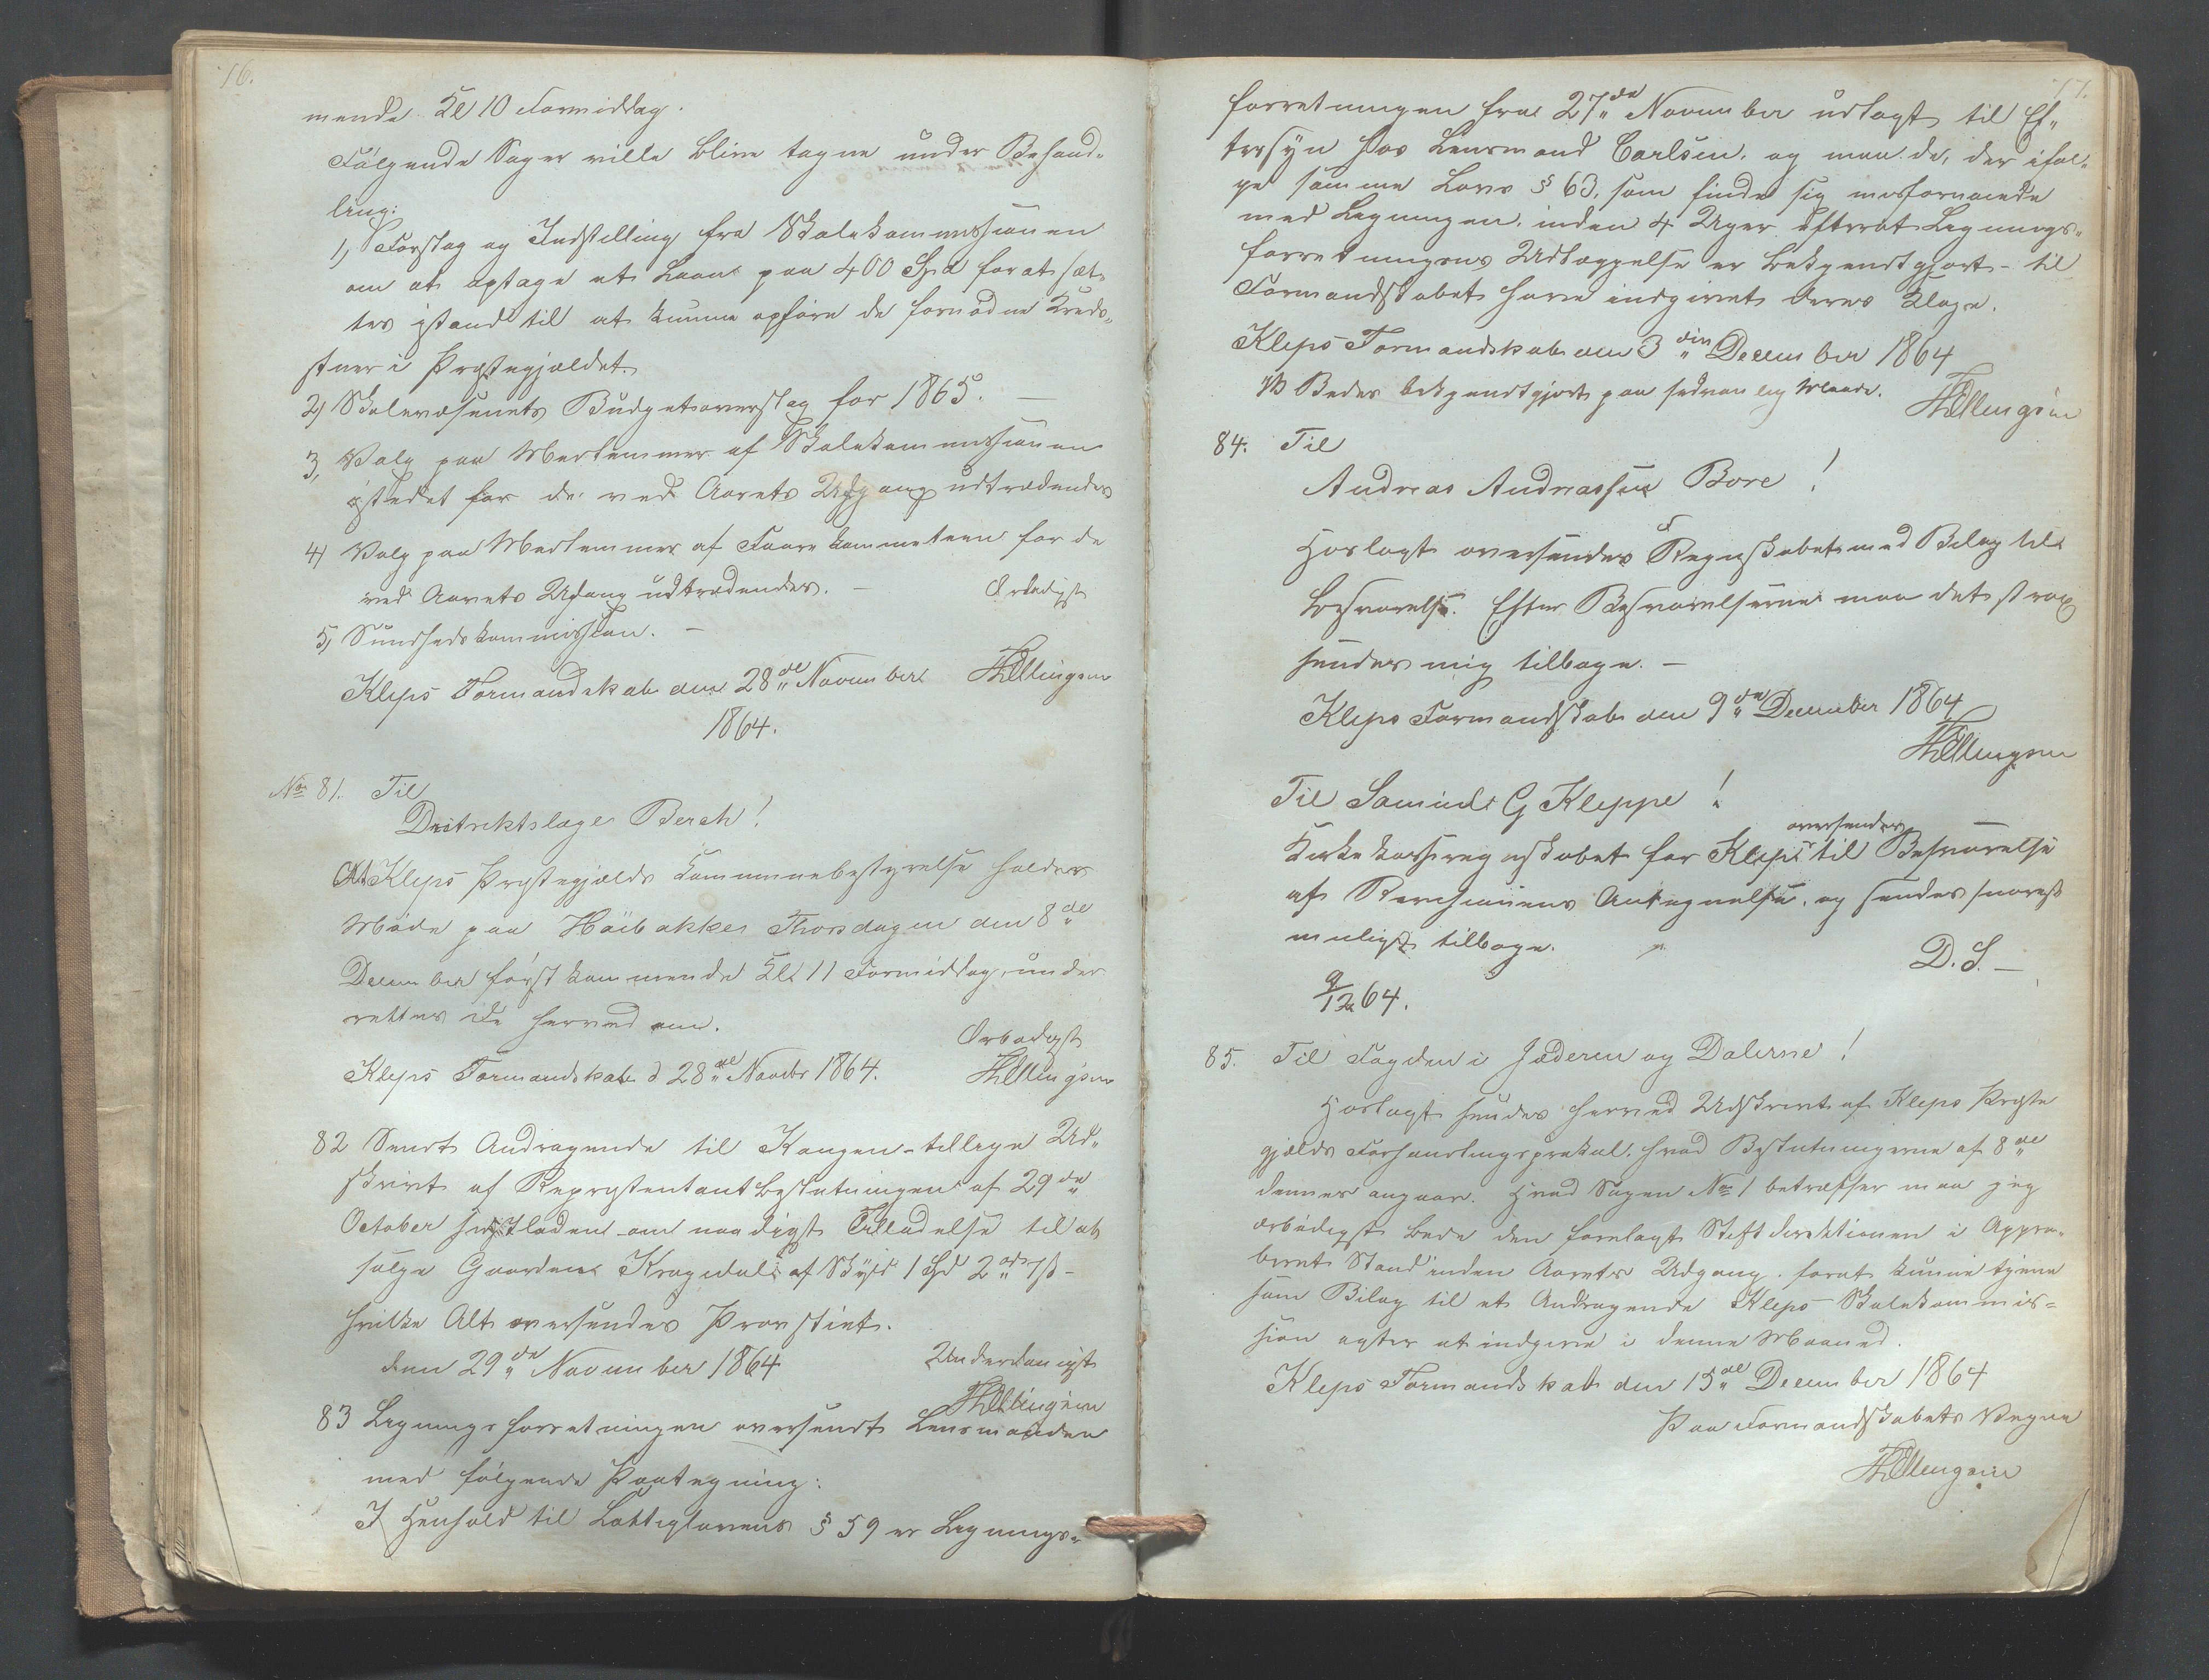 76.
mende Kl 10 Formiddag.
Følgende Sager ville blive tagne under Behand-
ling:
1, Forslag og Indstilling fra Skolekommissionen
om at optage et Laan paa 400 Spd for at sæt-
tes istand til at kunne opføre de fornødne Kreds-
stuer i Præstegjældet.
2, Skolevæsenets Budgetoverslag for 1865. —
3, Valg paa Medlemmer af Skolekommissionen
istedet for de ved Aarets Udgang udtrædende
4, Valg paa Medlemmer af kommiteen for de
ved Aarets Udgang udtrædende. — Ærbødigst
5, Sundhedskommission. —
Kleps Formandskab den 28de November Ellingsen
1864.
No 81. Til
Distriktslæge Berch!
At Kleps Præstegjælds Kommunebestyrelse holder
Møde paa Høibakke Thorsdagen den 8de
December førstkommende Kl 11 Formiddag, under-
rettes De herved om.
Ærbødigst
Kleps Formandskab d 28de Novbr 1864. Ellingsen
82 Sendt Andragende til Kongen tillige Ud-
skrivt af Repræsentantbeslutningen af 29de
October om naadigst Tilladelse til at
sælge Gaarden Kragedal af Skyld 1 Spd 2 ort 7 s —
hvilke Alt oversendes Provstiet.
den 29de November 1864 Underdanigst
Ellingsen
83 Ligningsforretningen oversendt Lensmanden
med følgende Paategning:
I Henhold til Fattiglovens § 59 er Lignings-
77.
forretningen fra 27de November udlagt til Ef-
tersyn hos Lensmand Carlsen, og maa de, der iføl-
ge samme Lovs § 63, som finde sig misfornøiede
med Ligningen, inden 4 Uger efterat Lignings-
forretningens Udlæggelse er bekjendtgjort — til
Formandskabet have indgivet deres Klage.
Kleps Formandskab den 3die December 1864
NB Bedes bekjendtgjort paa sædvanlig Maade. Ellingsen
84. Til
Andreas Andreassen Bore!
Hoslagt oversendes Regnskabet med Bilag til
Besvarelse. Efter Besvarelserne maa det strax
sendes mig tilbage. —
Kleps Formandskab den 9de December 1864
Ellingsen
Til Samuel G Kleppe!
oversendes
Kirkekasseregnskabet for Klep til Besvarelse
af Revisionens Antegnelse, og sendes snarest
muligst tilbage.
D. S. —
9/12 64.
85. Til Fogden i Jæderen og Dalerne!
Hoslagt sendes herved Udskrivt af Kleps Præste
gjælds Forhandlingsprotokol, hvad Beslutningerne af 8de
dennes angaar. Hvad Sagen No 1 betræffer maa jeg
ærbødigst bede den forelagt Stiftdirektionen i Appro-
beret Stand inden Aarets Udgang, forat kunne tjene
som Bilag til et Andragende Kleps Skolekommis-
sion agter at indgive i denne Maaned.
Kleps Formandskab den 15de December 1864
Paa Formandskabets Vegne
Ellingsen